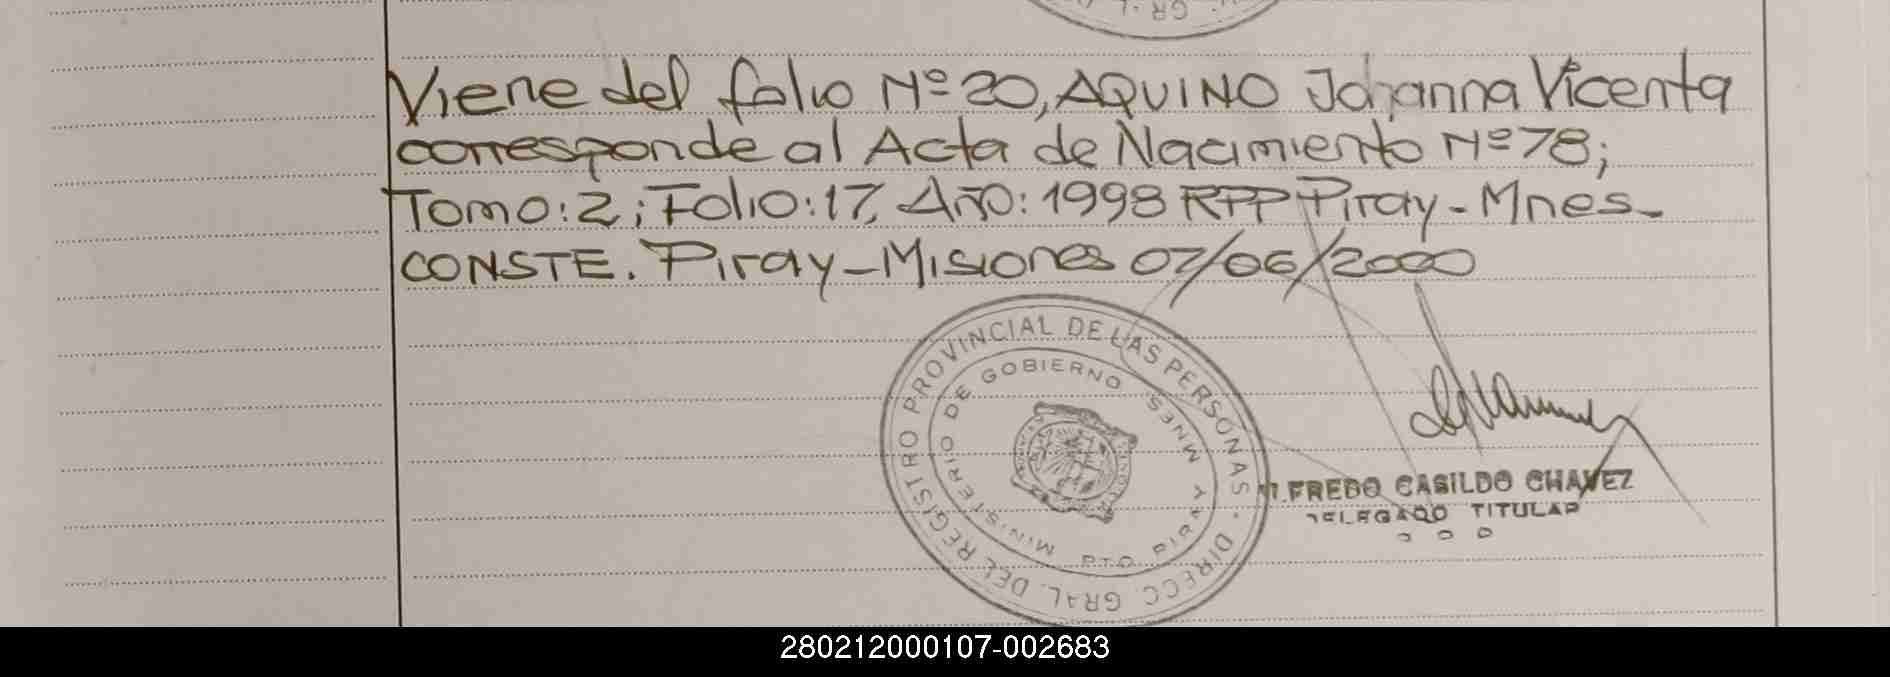 Viene del folio Nº 20, AQUINO Johanna Vicenta
corresponde al Acta de Nacimiento Nº 78;
Tomo: 2; Folio: 17, Año: 1998 RPP Piray - Mnes -
CONSTE. Piray - Misiones 07/06/2000
DIRECC. GRAL. DEL REGISTRO PROVINCIAL DE LAS PERSONAS
MINISTERIO DE GOBIERNO MNES.
PTO PIRAY
FREDO CASILDO CHAVEZ
DELEGADO TITULAR
280212000107-002683